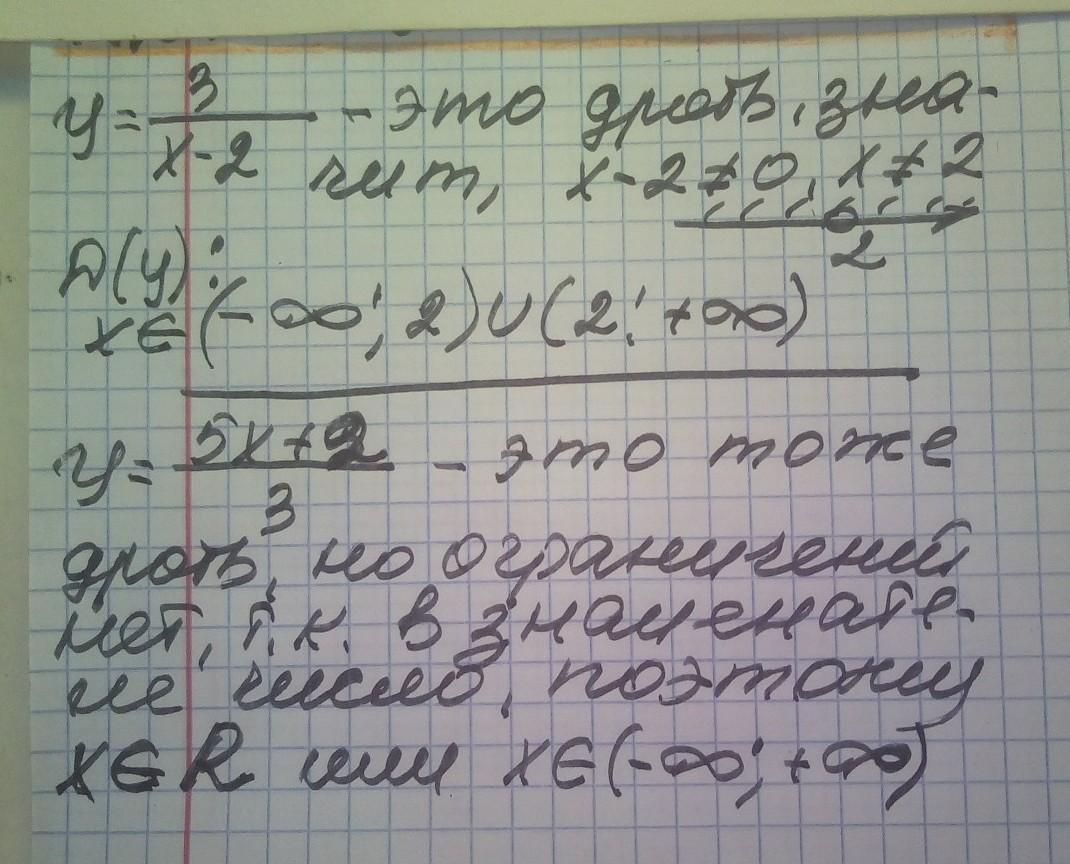 y = 3/(x-2) - это дробь, зна-
чит, x-2≠0, x≠2
2
D(y):
x∈(-∞; 2)∪(2; +∞)
y = (5x+2)/3 - это тоже
дробь, но ограничений
нет, т.к. в знаменате-
ле число, поэтому
x∈R или x∈(-∞; +∞)